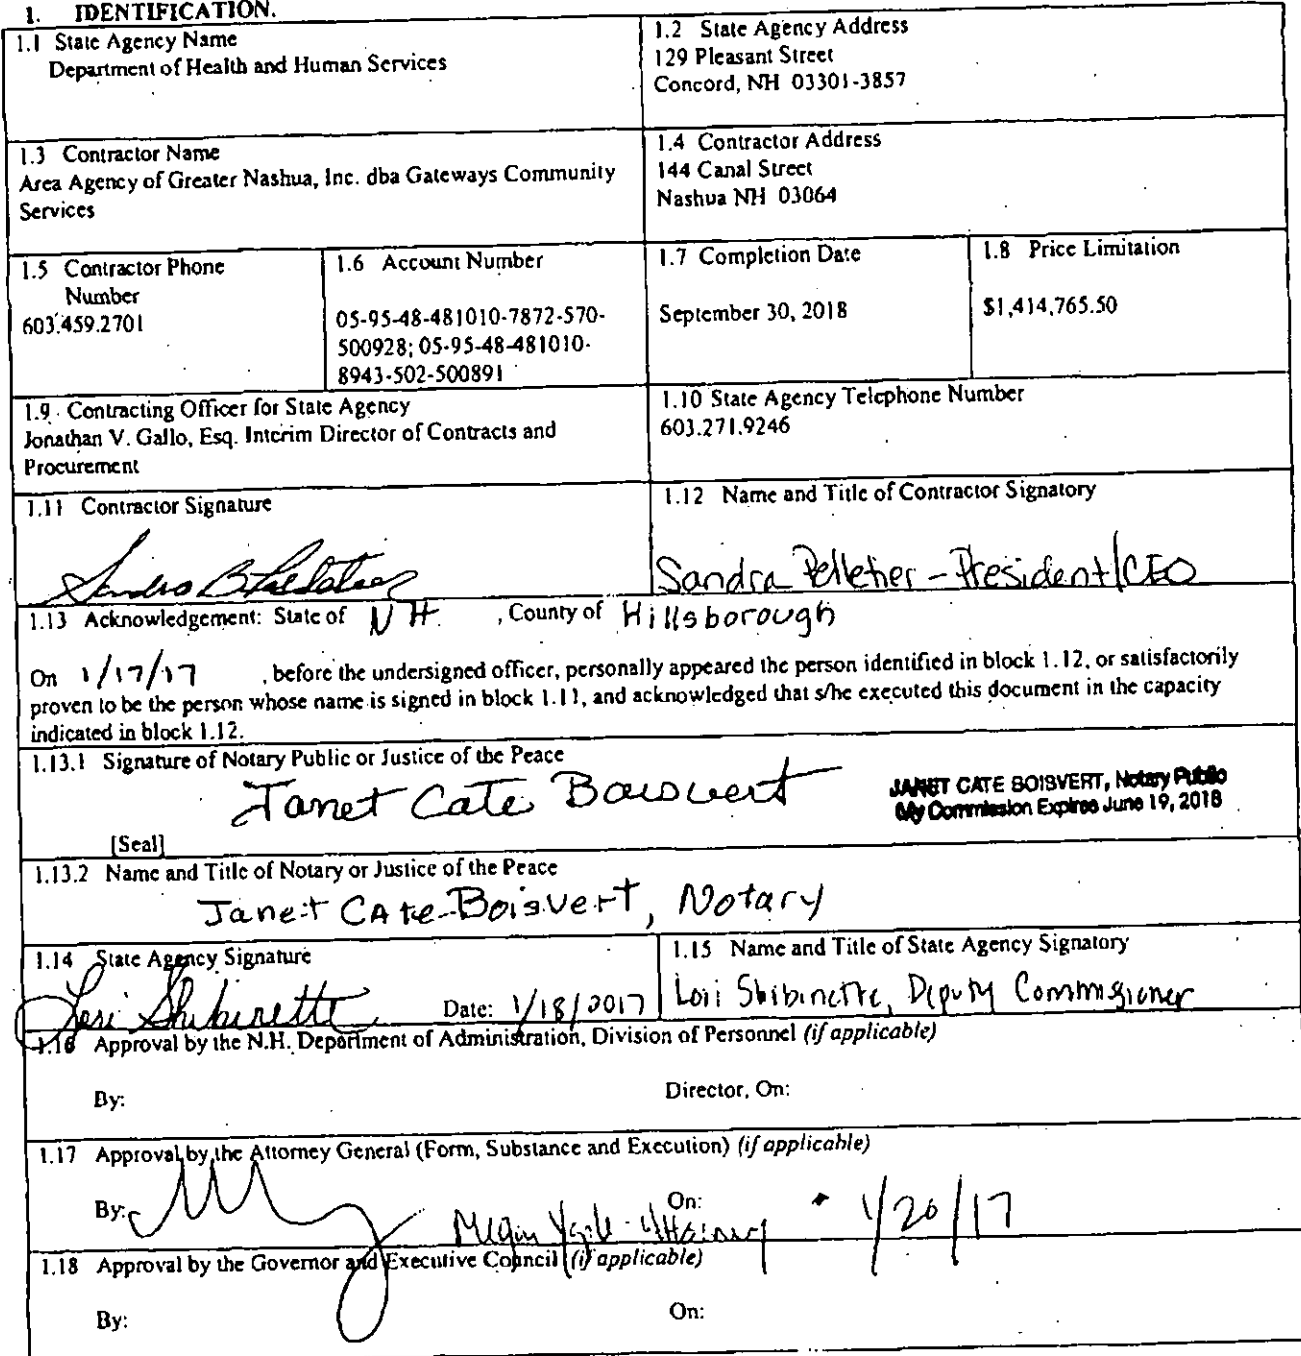 1. IDENTIFICATION.
1.1 State Agency Name
Department of Health and Human Services
1.2 State Agency Address
129 Pleasant Street
Concord, NH 03301-3857
1.3 Contractor Name
Area Agency of Greater Nashua, Inc. dba Gateways Community
Services
1.4 Contractor Address
144 Canal Street
Nashua NH 03064
1.5 Contractor Phone
Number
603.459.2701
1.6 Account Number
05-95-48-481010-7872-570-
500928; 05-95-48-481010-
8943-502-500891
1.7 Completion Date
September 30, 2018
1.8 Price Limitation
$1,414,765.50
1.9 Contracting Officer for State Agency
Jonathan V. Gallo, Esq. Interim Director of Contracts and
Procurement
1.10 State Agency Telephone Number
603.271.9246
1.11 Contractor Signature
1.12 Name and Title of Contractor Signatory
Sandra Pelletier - President/CEO
1.13 Acknowledgement: State of NH , County of Hillsborough
On 1/17/17 , before the undersigned officer, personally appeared the person identified in block 1.12, or satisfactorily
proven to be the person whose name is signed in block 1.11, and acknowledged that s/he executed this document in the capacity
indicated in block 1.12.
1.13.1 Signature of Notary Public or Justice of the Peace
Janet Cate Boisvert
JANET CATE BOISVERT, Notary Public
My Commission Expires June 19, 2018
[Seal]
1.13.2 Name and Title of Notary or Justice of the Peace
Janet Cate-Boisvert, Notary
1.14 State Agency Signature
Lori Shibinette Date: 1/18/2017
1.15 Name and Title of State Agency Signatory
Lori Shibinette, Deputy Commissioner
1.16 Approval by the N.H. Department of Administration, Division of Personnel (if applicable)
By: Director, On:
1.17 Approval by the Attorney General (Form, Substance and Execution) (if applicable)
By: On: 1/20/17
1.18 Approval by the Governor and Executive Council (if applicable)
By: On: